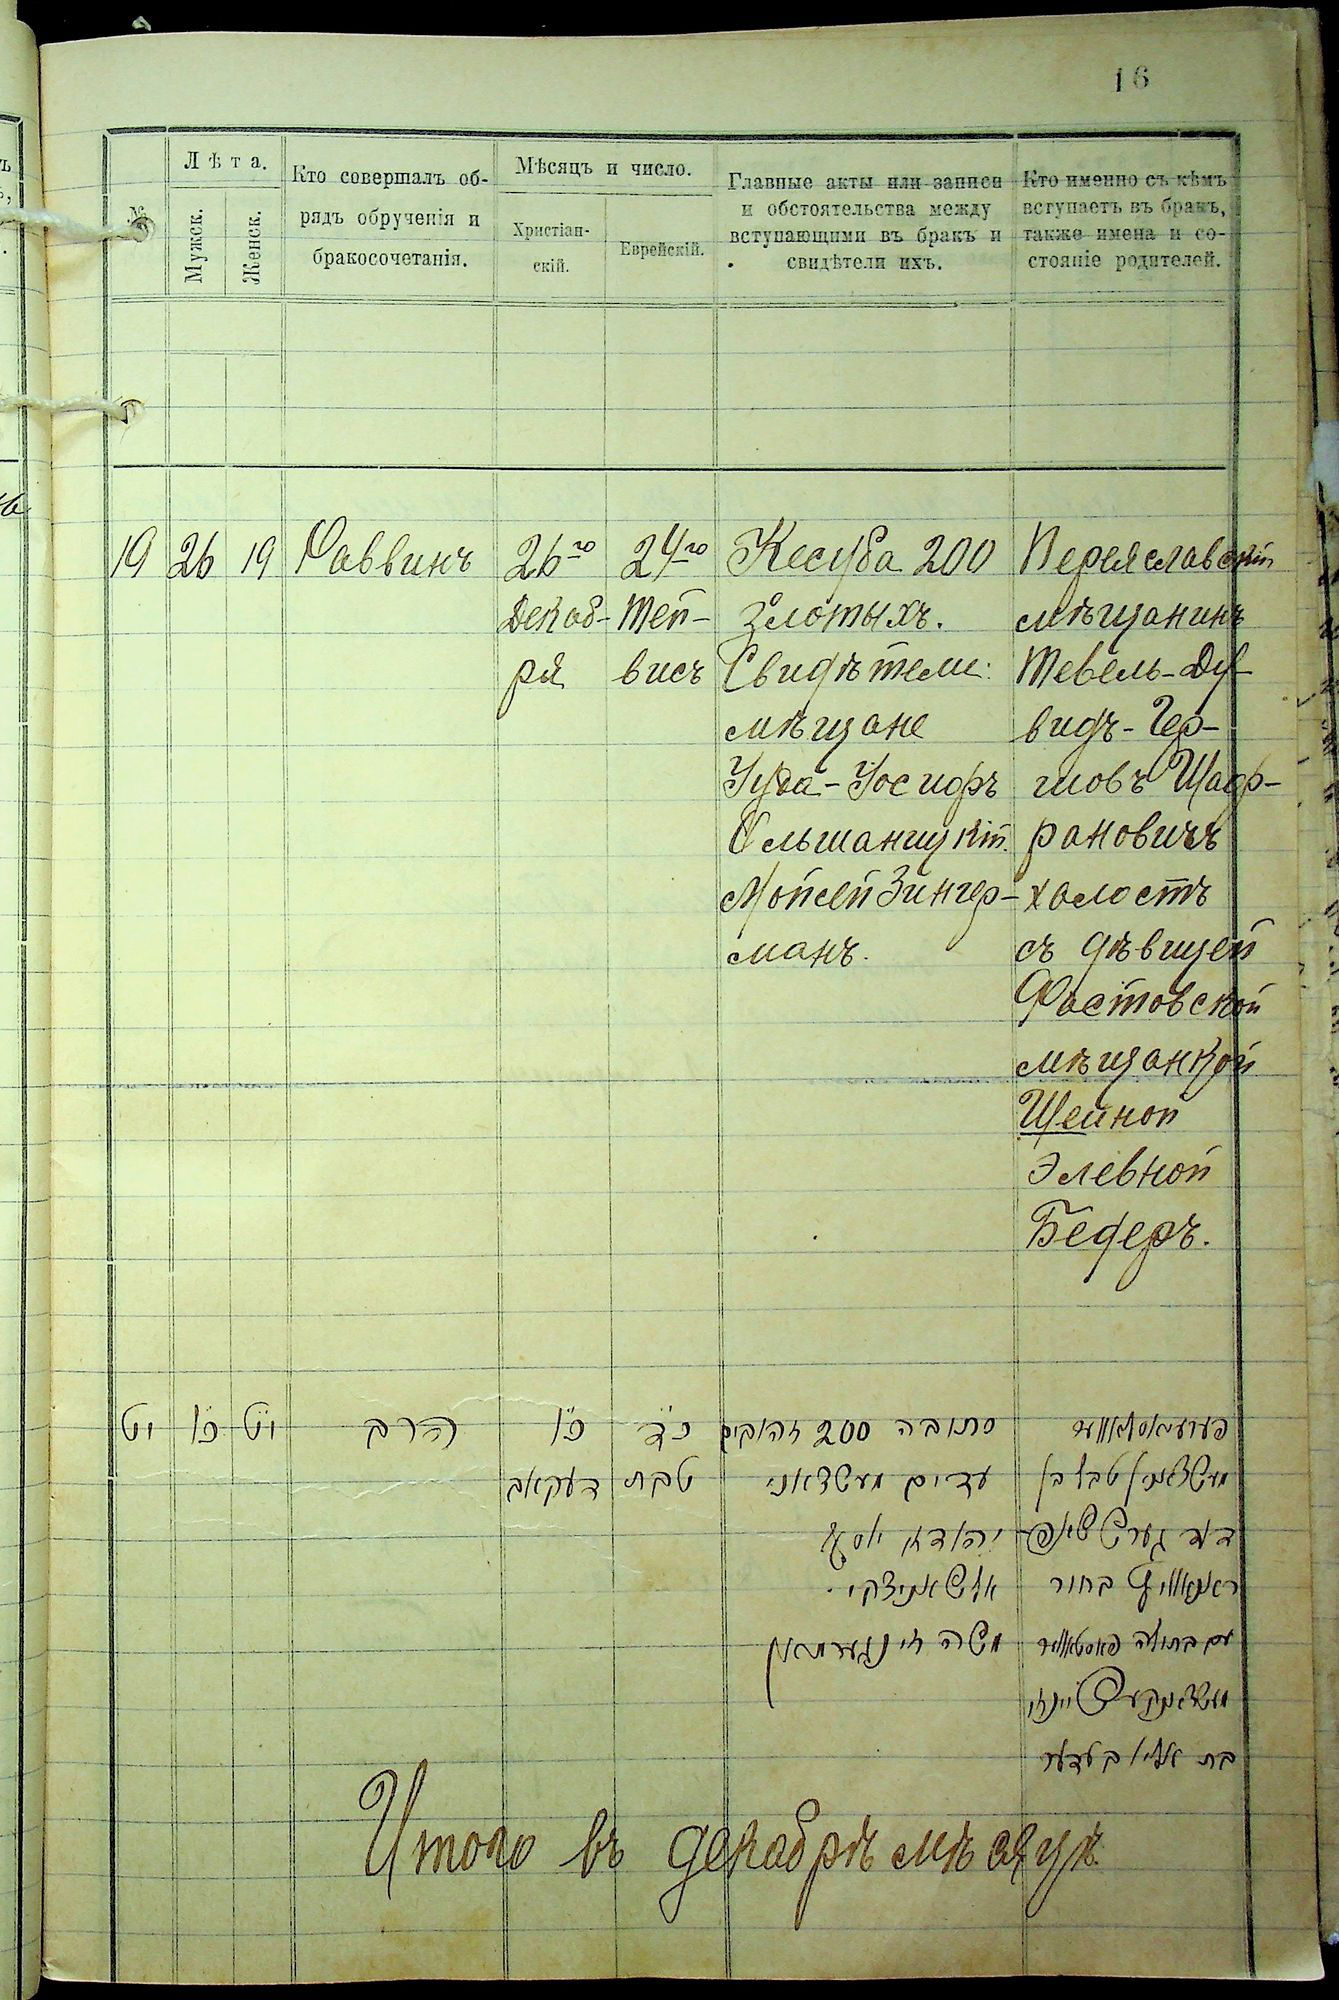 16
№
Лѣта.
Мужск.
Женск.
Кто совершалъ об-
рядъ обрученія и
бракосочетанія.
Мѣсяцъ и число.
Христіан-
скій.
Еврейскій.
Главные акты или записи
и обстоятельства между
вступающими въ бракъ и
свидѣтели ихъ.
Кто именно съ кѣмъ
вступаетъ въ бракъ,
также имена и со-
стояніе родителей.
19
26
19
Раввинъ
26го
Декаб-
ря
24го
Теп-
висъ
Кесуба 200
злотыхъ.
Свидѣтели:
мѣщане
Іуда-Іосифъ
Ольшаницкій.
Мойсей Зингер-
манъ.
Переяславскій
мѣщанинъ
Тевель-Ду-
видъ-Гер-
шовъ Шаф-
рановичъ
холостъ
съ дѣвицей
Фастовской
мѣщанкой
Шейной
Элевной
Бедеръ.
יט
כ״ו
י״ט
הרב
כ״ו
דעקאב
כ״ד
טבת
כתובה 200 זהובים
עדים מעשצאני
יהודא יוסף
אלשאניצקי.
משה זינגערמאן
מעשצאנין טבל בן
דוד גערש שאפ־
ראנאוויץ בחור
עם בתולה פאסטאווער
מעשצאנקע שיינא
בת אליו בעדער
Итого въ декабрѣ мѣсяцѣ.